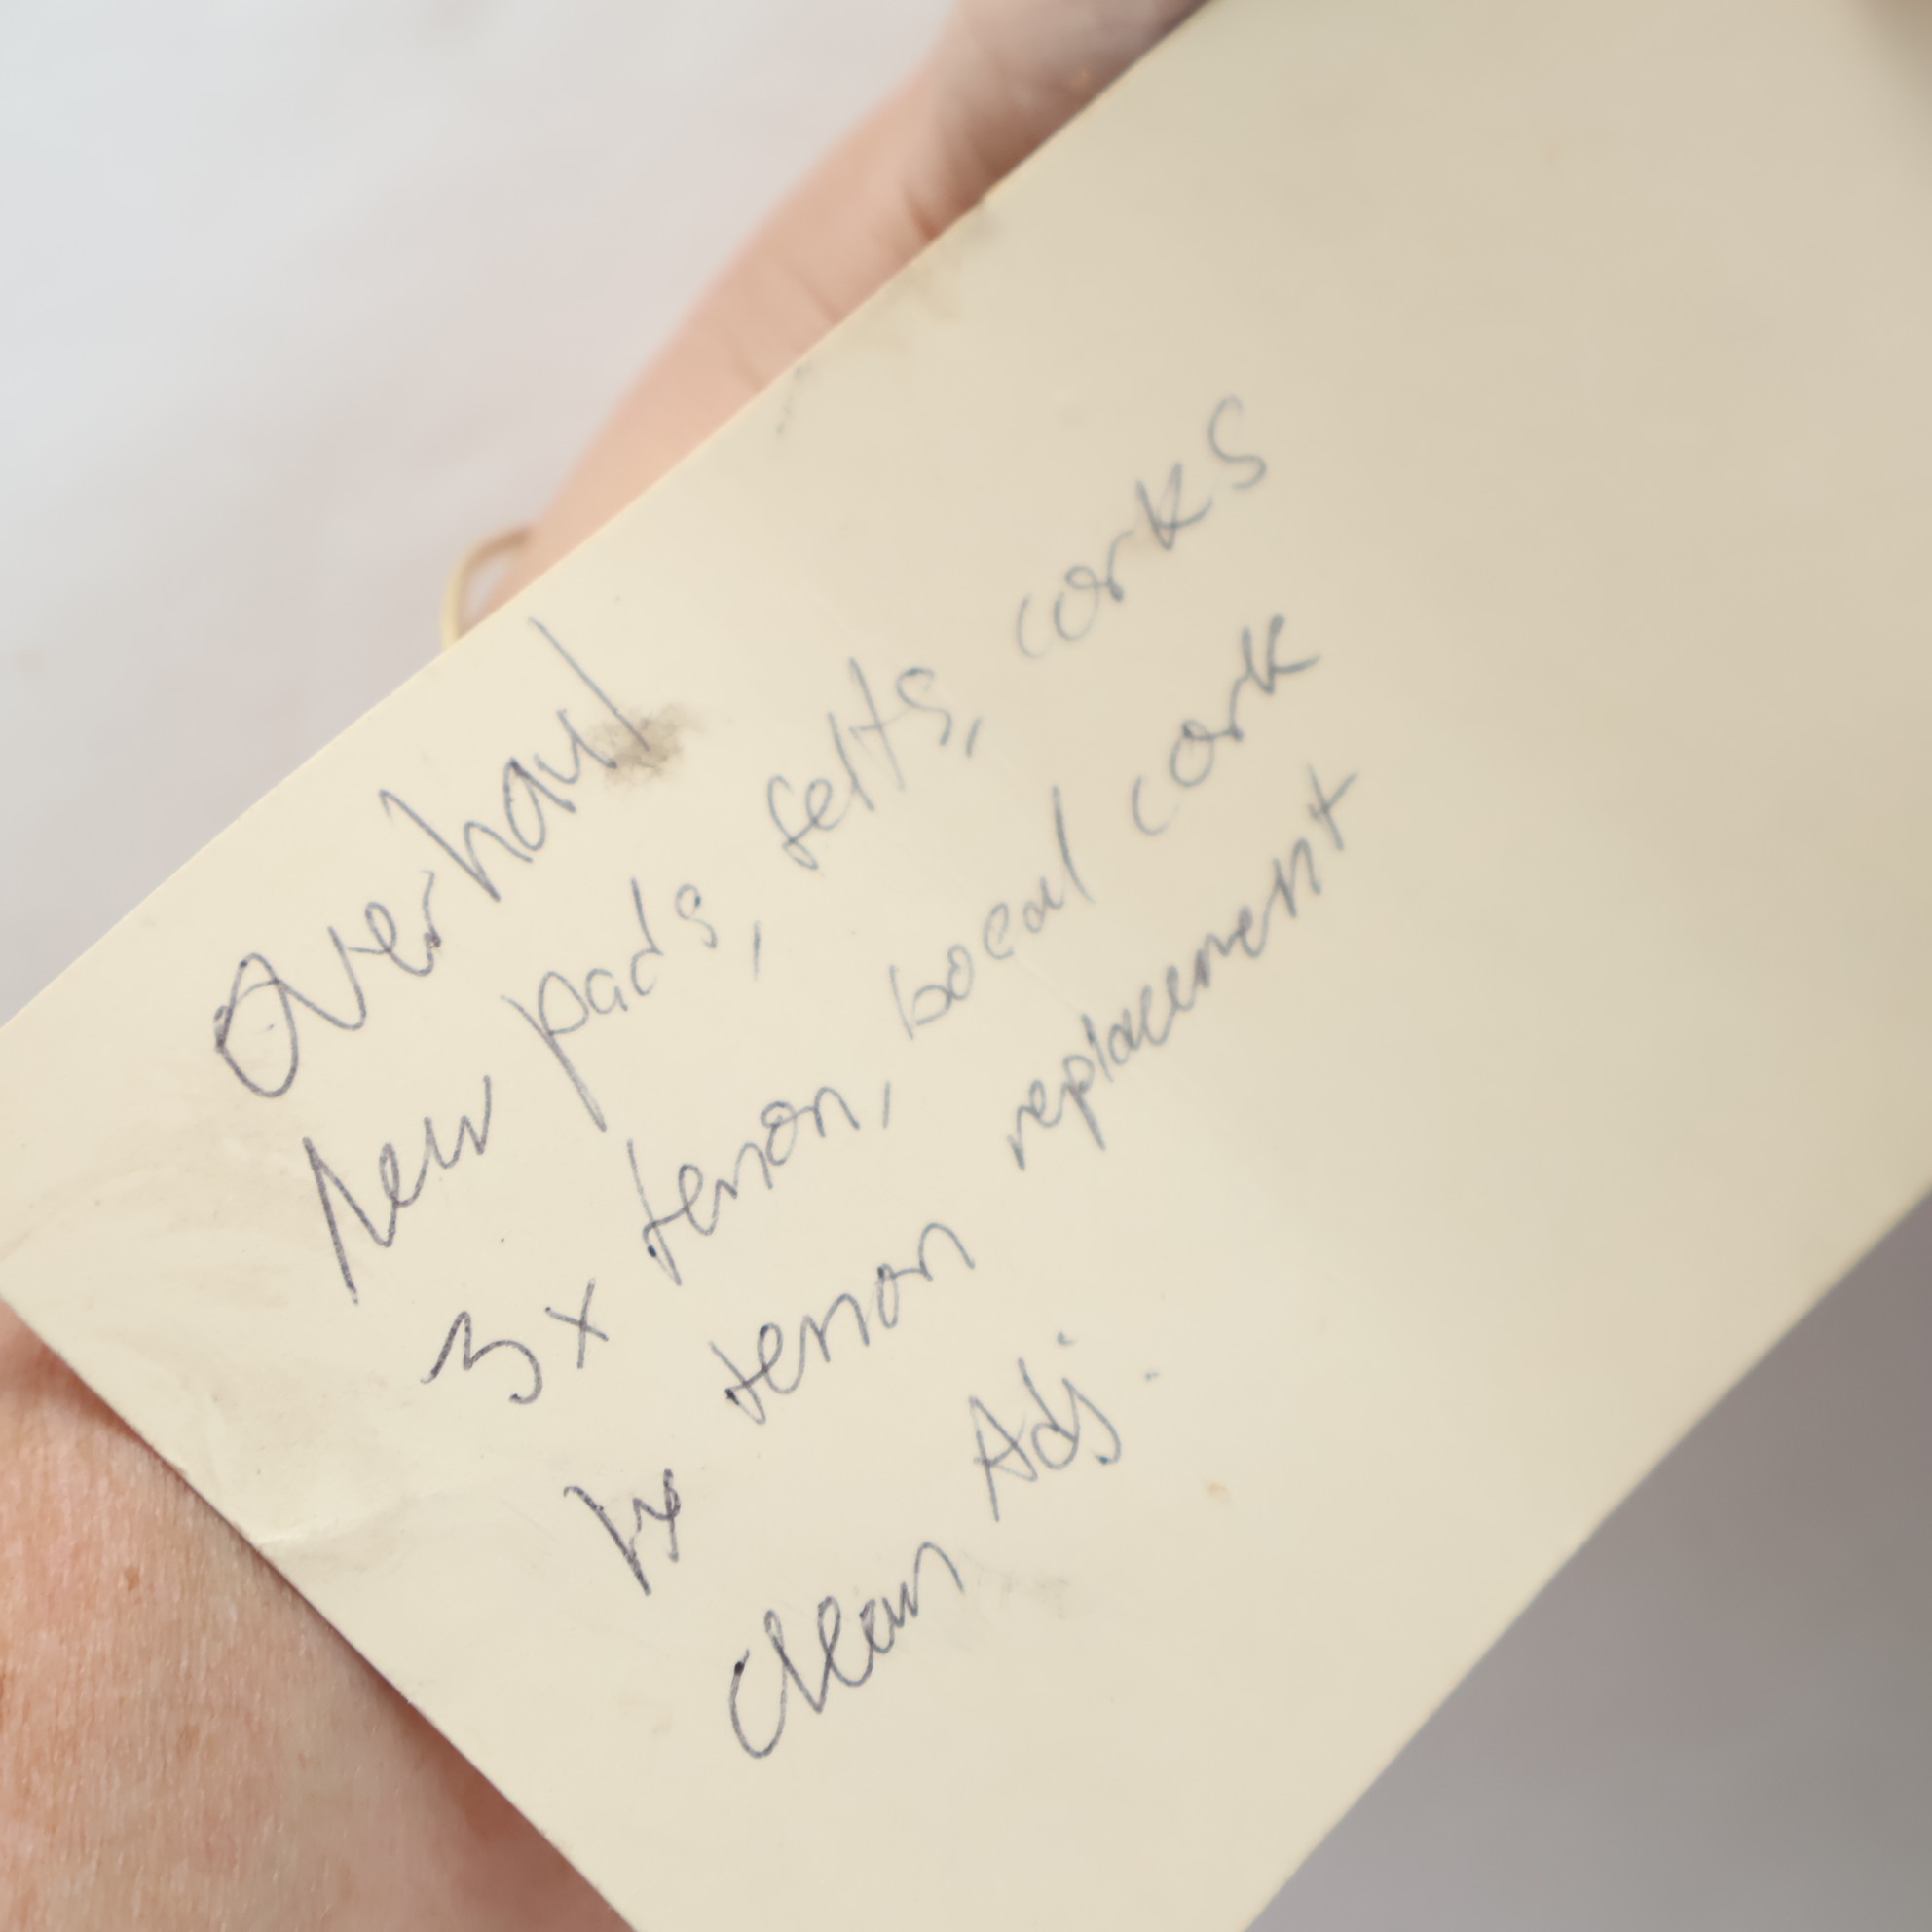 Overhaul
New pads, felts, corks
3x tenon, bocal cork
1x tenon replacement
Clean Adj.